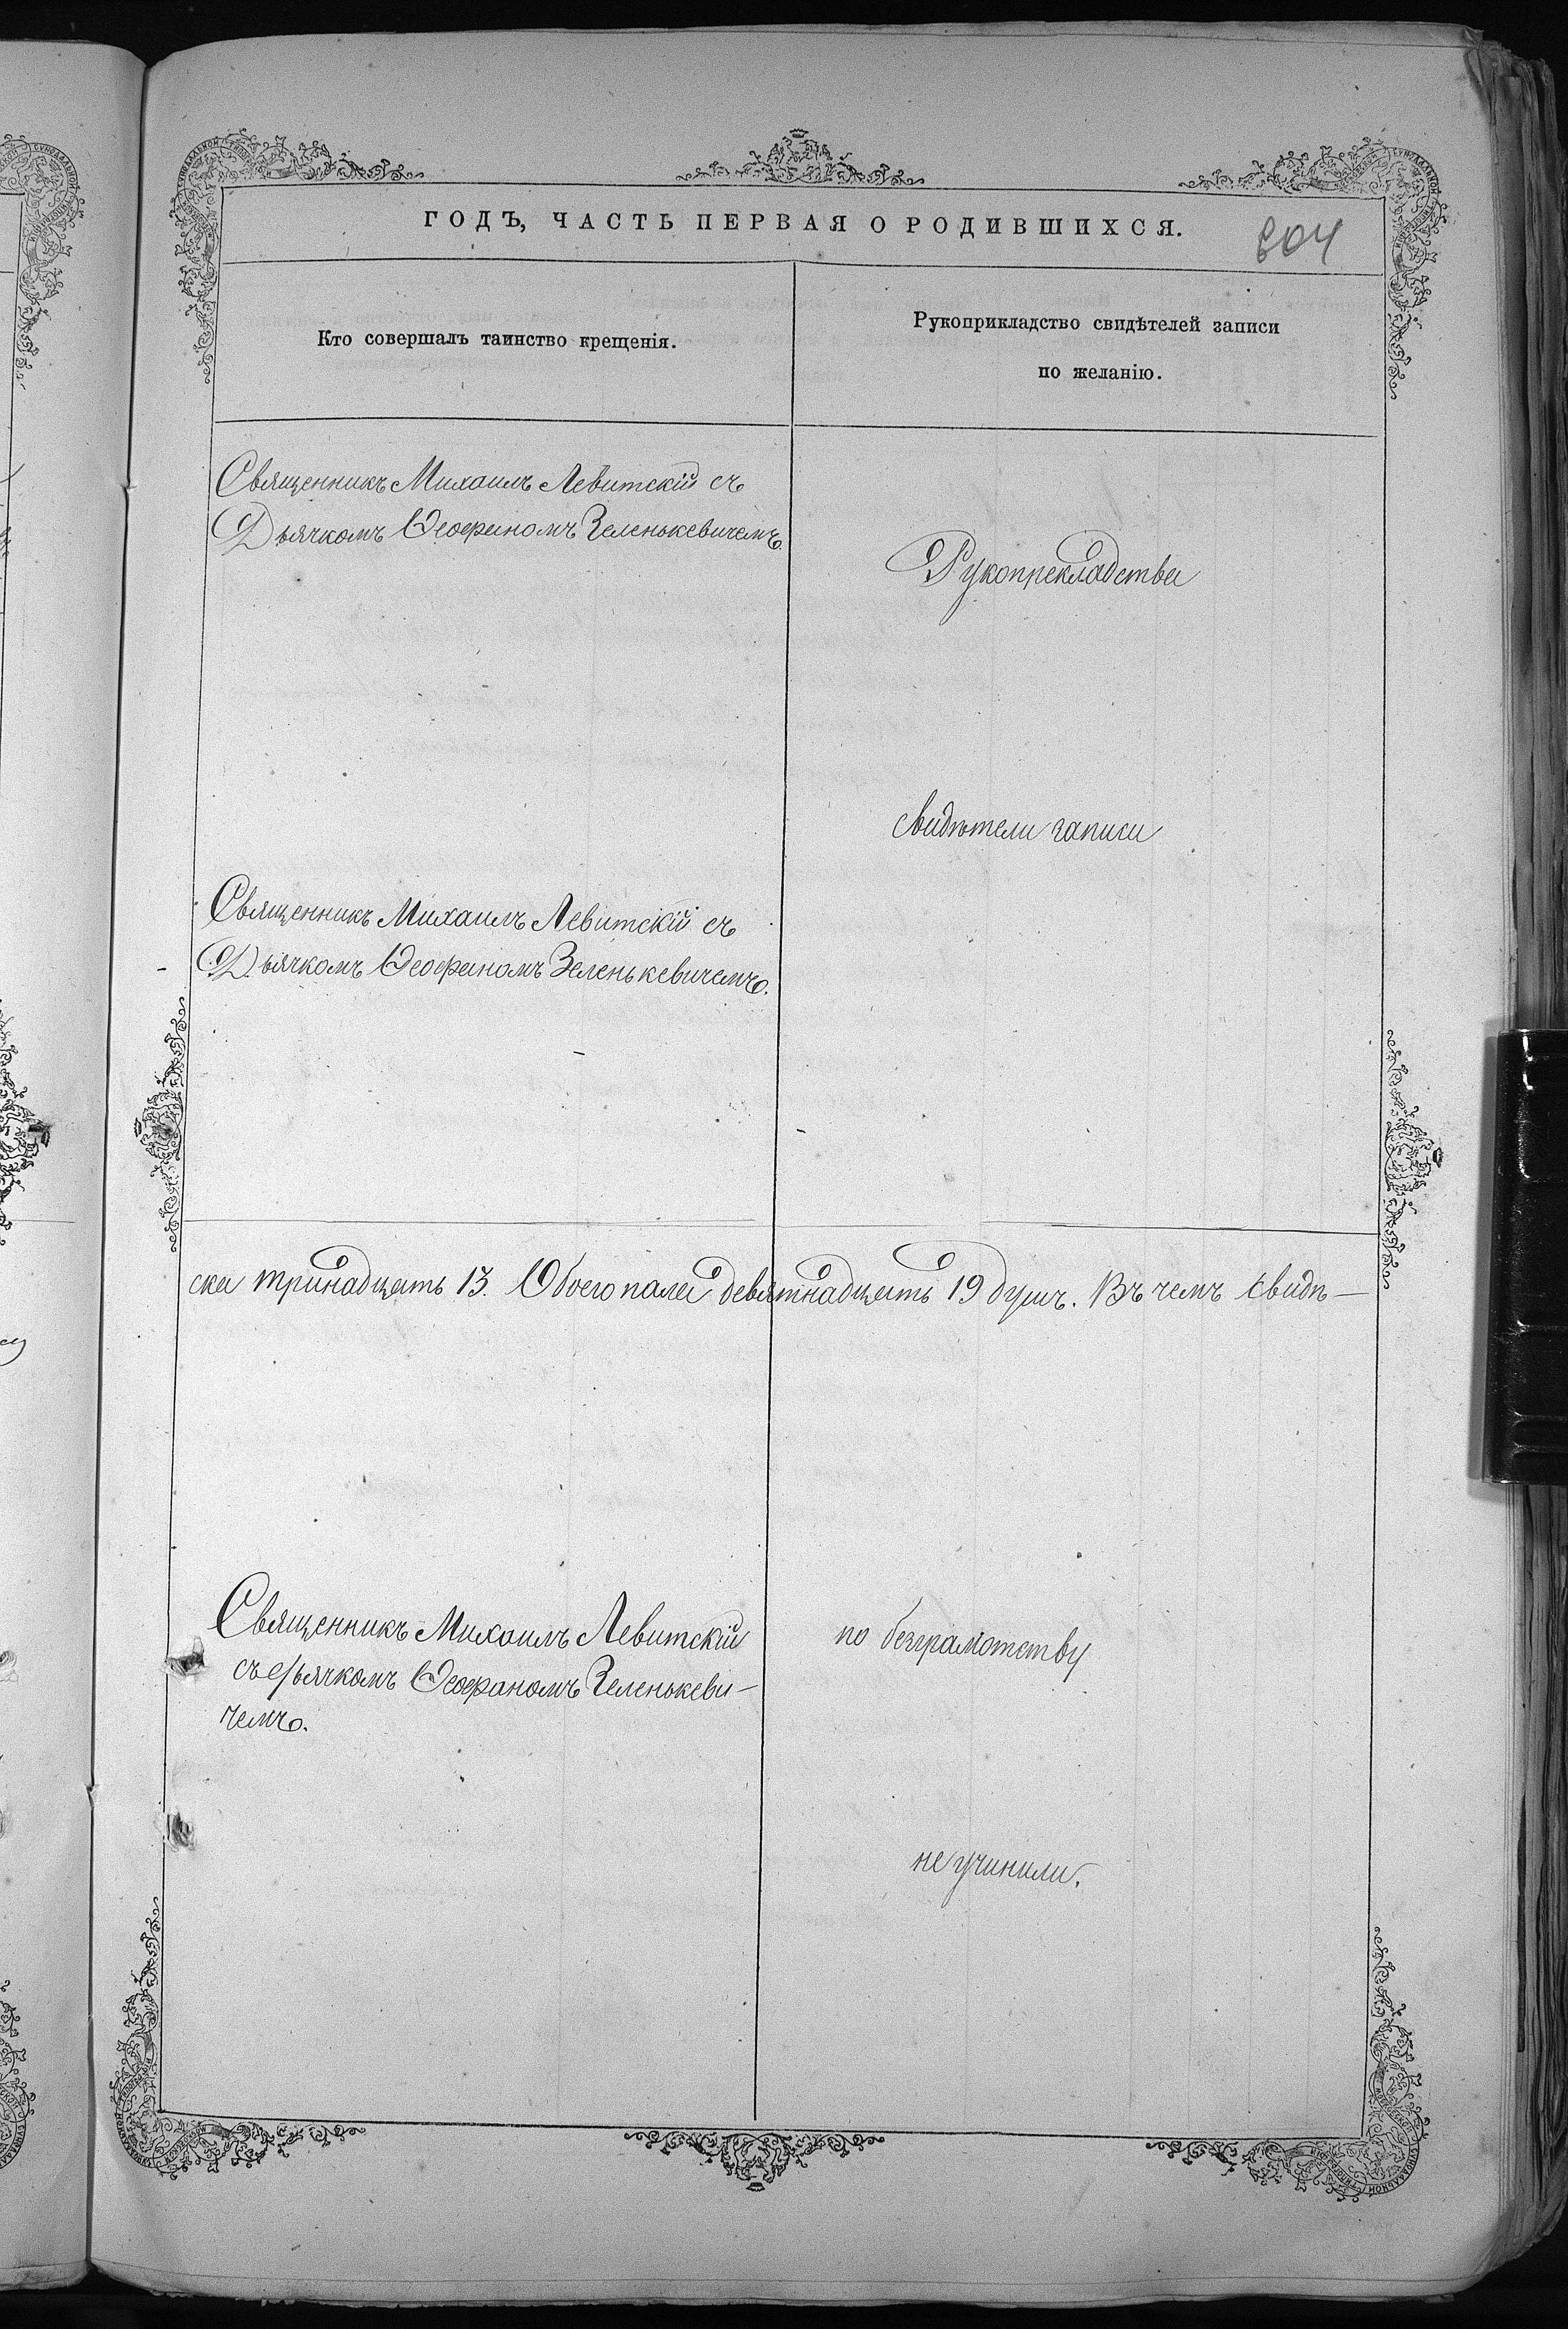 ГОДЪ, ЧАСТЬ ПЕРВАЯ О РОДИВШИХСЯ.
804
Кто совершалъ таинство крещенія.
Рукоприкладство свидѣтелей записи
по желанію.
Священникъ Михаилъ Левитскій съ
Дьячкомъ Ѳеофаномъ Зеленькевичемъ.
Рукопрекладства
свидѣтели записи
Священникъ Михаилъ Левитскій съ
Дьячкомъ Ѳеофаномъ Зеленькевичемъ.
ска тринадцать 13. Обоего пала девятнадцать 19 душъ. Въ чемъ свидѣ—
Священникъ Михаилъ Левитскій
съ дьячкомъ Ѳеофаномъ Зеленькеви-
чемъ.
по безграмотству
не учинили.